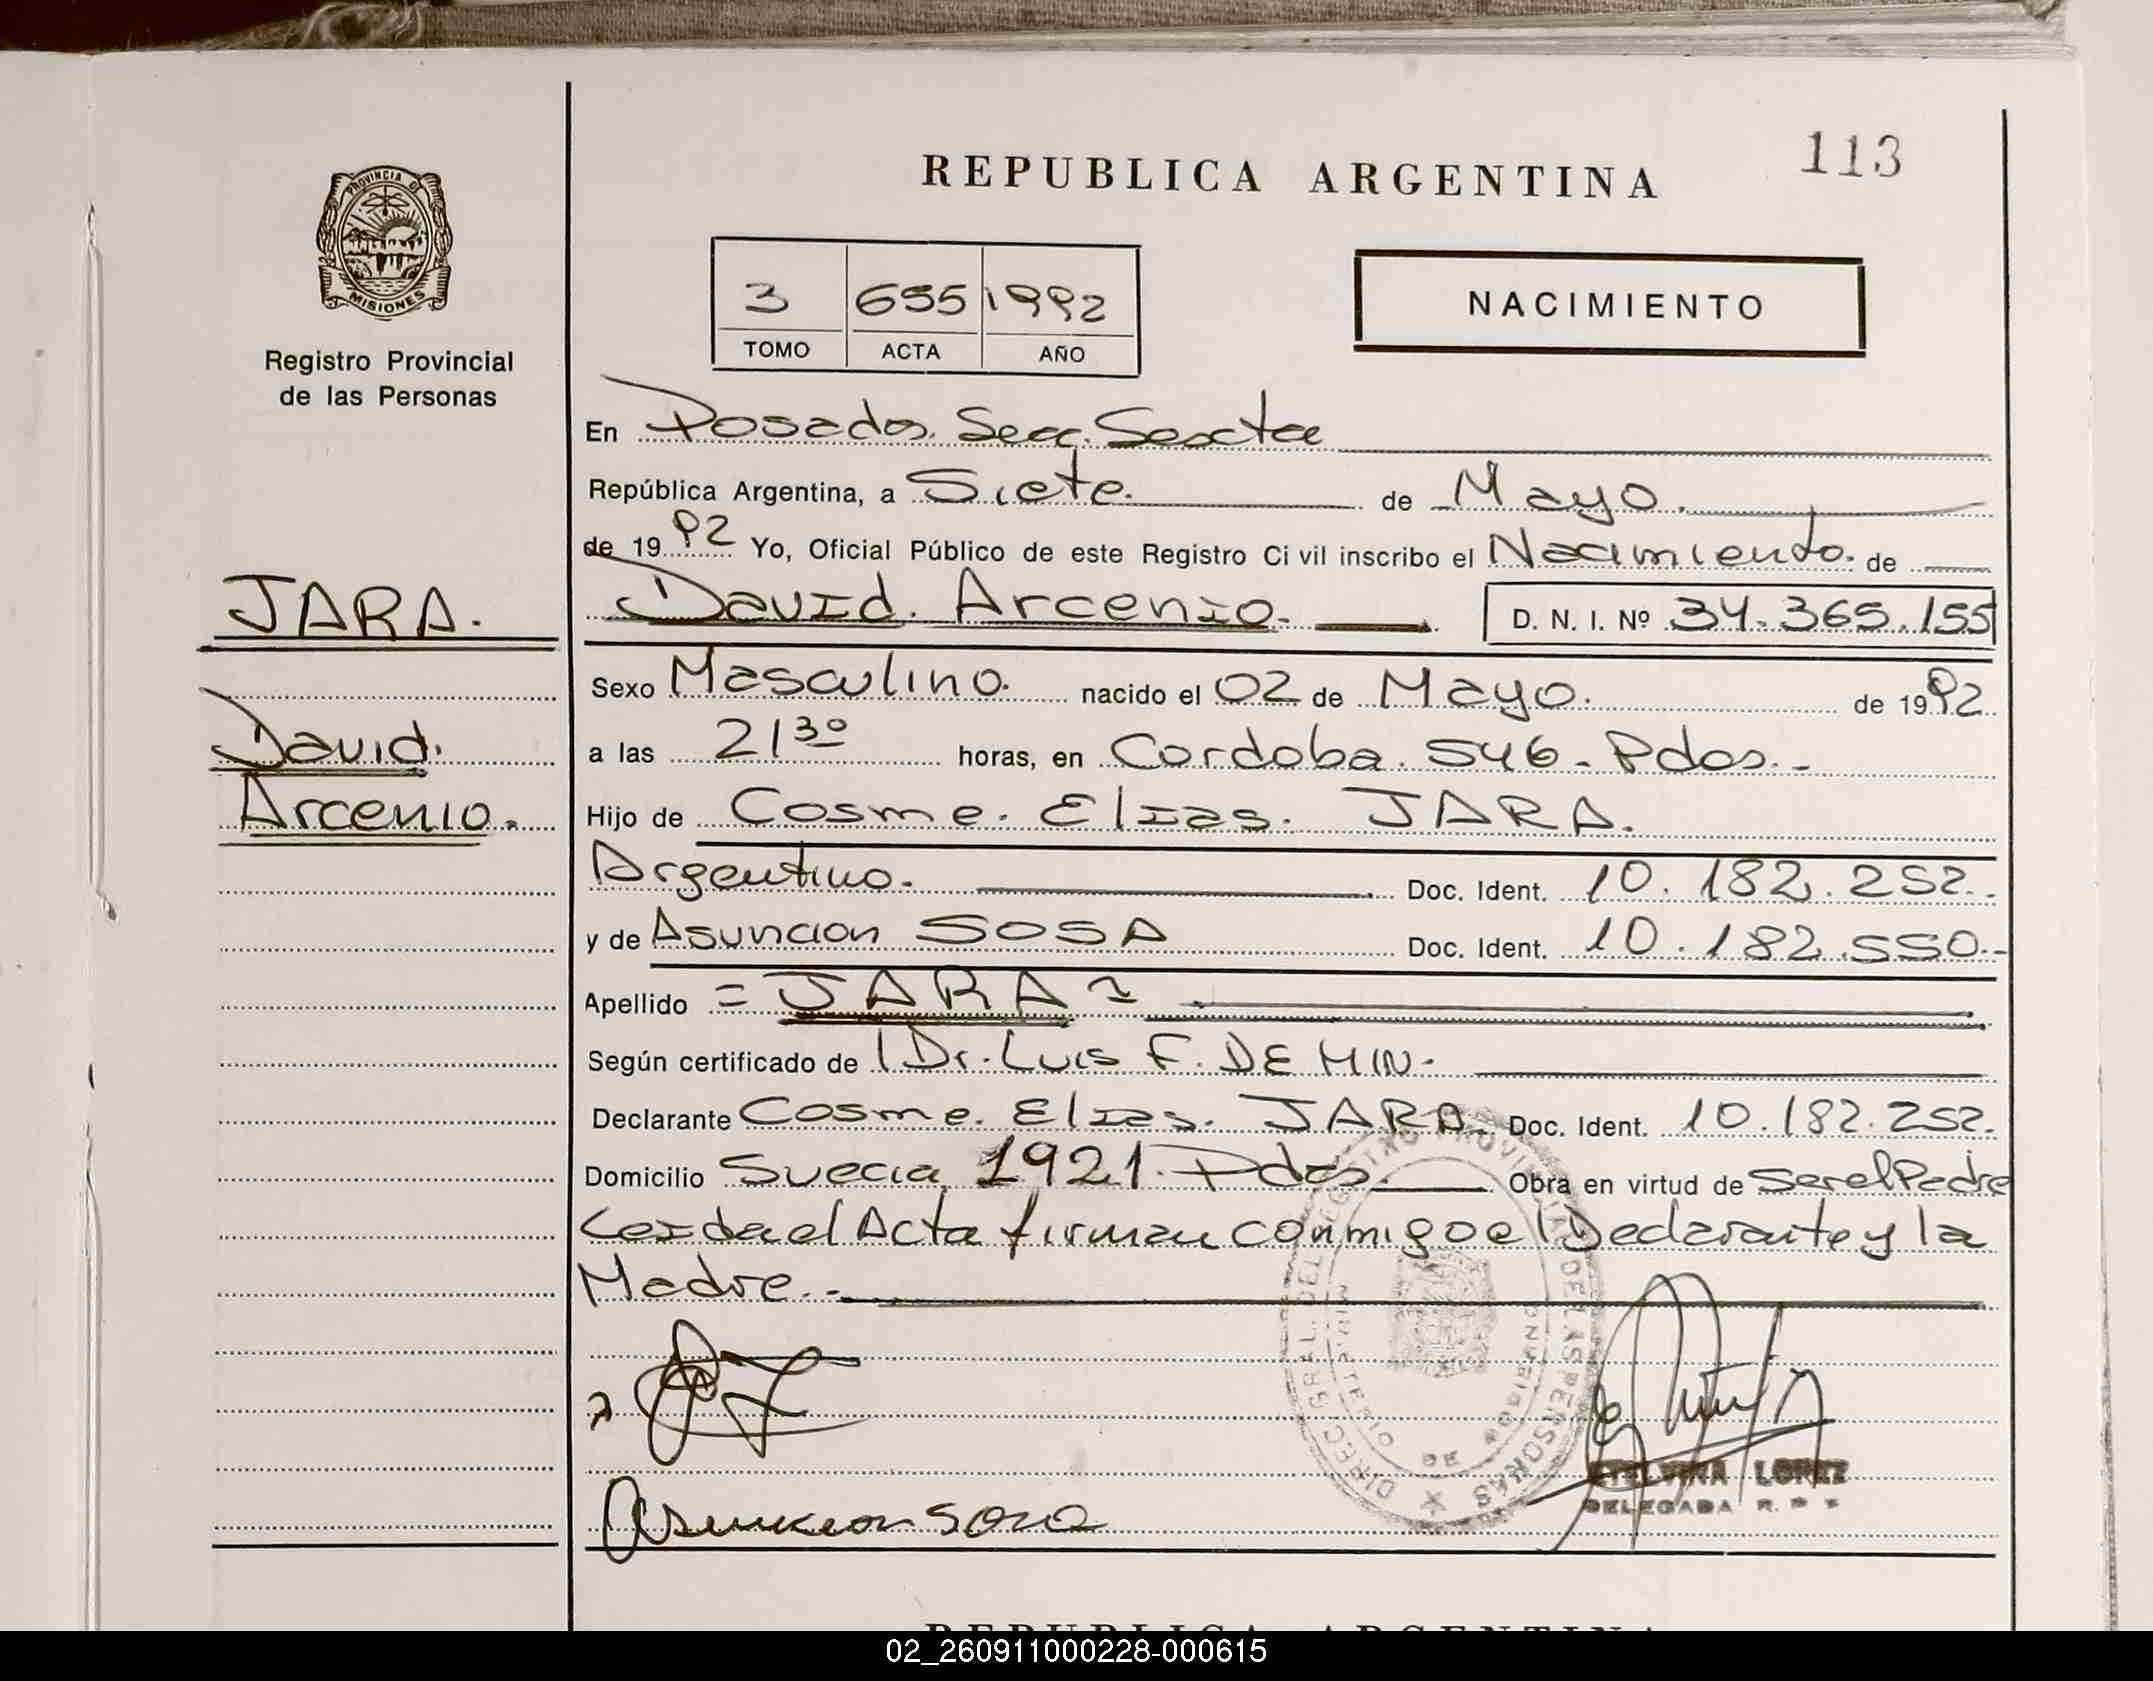 REPUBLICA ARGENTINA
113
PROVINCIA DE
MISIONES
Registro Provincial
de las Personas
3 655 1992
TOMO ACTA AÑO
NACIMIENTO
En Posadas. Secc. Sexta
República Argentina, a Siete. de Mayo.
de 1992 Yo, Oficial Público de este Registro Civil inscribo el Nacimiento. de
JARA.
David. Arcenio. D. N. I. Nº 34.365.155
Sexo Masculino. nacido el 02 de Mayo. de 1992
David.
Arcenio.
a las 21 30 horas, en Cordoba. 546 - Pdas. -
Hijo de Cosme. Elias. JARA.
Argentino. Doc. Ident. 10.182.252.
y de Asuncion SOSA Doc. Ident. 10.182.550-
Apellido = JARA ~
Según certificado de Dr. Luis F. DE MIN.
Declarante Cosme. Elias. JARA. Doc. Ident. 10.182.252.
Domicilio Suecia 1921. Pdas. Obra en virtud de Ser el Padre
Leida el Acta firman conmigo el Declarante y la
Madre. -
DIREC. GRAL. DEL REGISTRO PROVINCIAL DE LAS PERSONAS
MINISTERIO DE
ETELVINA LOPEZ
DELEGADA R. P. P.
Asuncion sosa
REPUBLICA ARGENTINA
02_260911000228-000615